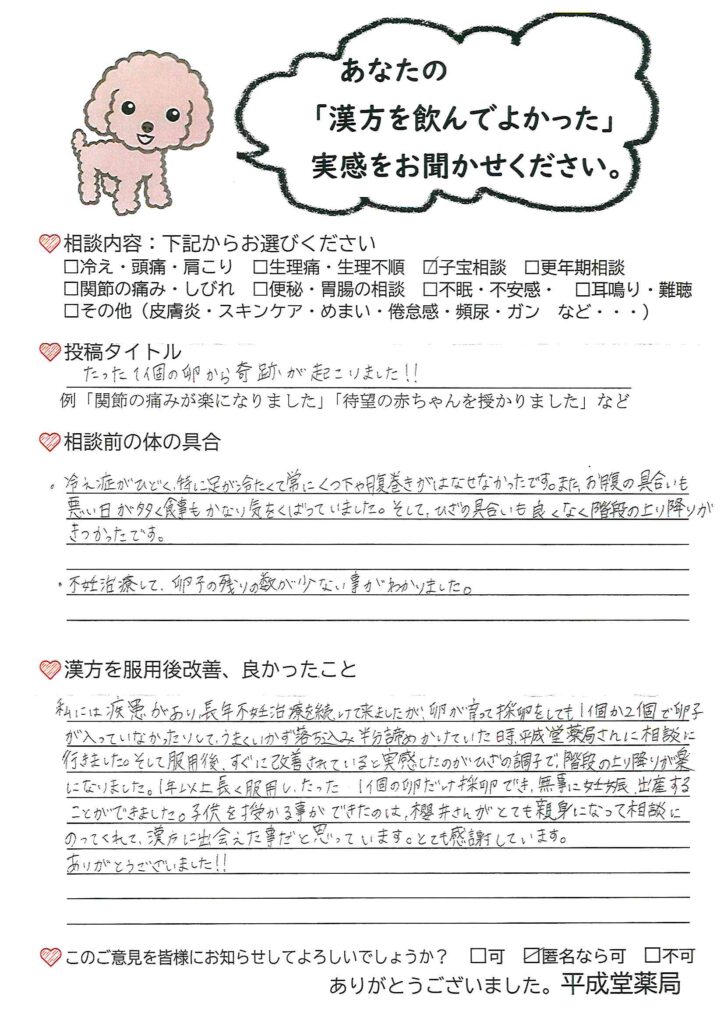 あなたの
「漢方を飲んでよかった」
実感をお聞かせください。
相談内容：下記からお選びください
□冷え・頭痛・肩こり □生理痛・生理不順 ☑子宝相談 □更年期相談
□関節の痛み・しびれ □便秘・胃腸の相談 □不眠・不安感・ □耳鳴り・難聴
□その他（皮膚炎・スキンケア・めまい・倦怠感・頻尿・ガン など・・・）
投稿タイトル
たった1個の卵から奇跡が起こりました!!
例「関節の痛みが楽になりました」「待望の赤ちゃんを授かりました」など
相談前の体の具合
・冷え症がひどく、特に足が冷たくて常にくつ下や腹巻きがはなせなかったです。また、お腹の具合いも
悪い日が多く食事もかなり気をくばっていました。そして、ひざの具合いも良くなく階段の上り降りが
きつかったです。
・不妊治療して、卵子の残りの数が少ない事がわかりました。
漢方を服用後改善、良かったこと
私には疾患があり、長年不妊治療を続けて来ましたが、卵が育って採卵をしても1個か2個で卵子
が入っていなかったりして、うまくいかず落ち込み半分諦めかけていた時、平成堂薬局さんに相談に
行きました。そして服用後、すぐに改善されていると実感したのがひざの調子で、階段の上り降りが楽
になりました。1年以上長く服用し、たった 1個の卵だけ採卵でき、無事に妊娠、出産する
ことができました。子供を授かる事ができたのは、櫻井さんがとても親身になって相談に
のってくれて、漢方に出会えた事だと思っています。とても感謝しています。
ありがとうございました!!
このご意見を皆様にお知らせしてよろしいでしょうか？ □可 ☑匿名なら可 □不可
ありがとうございました。平成堂薬局